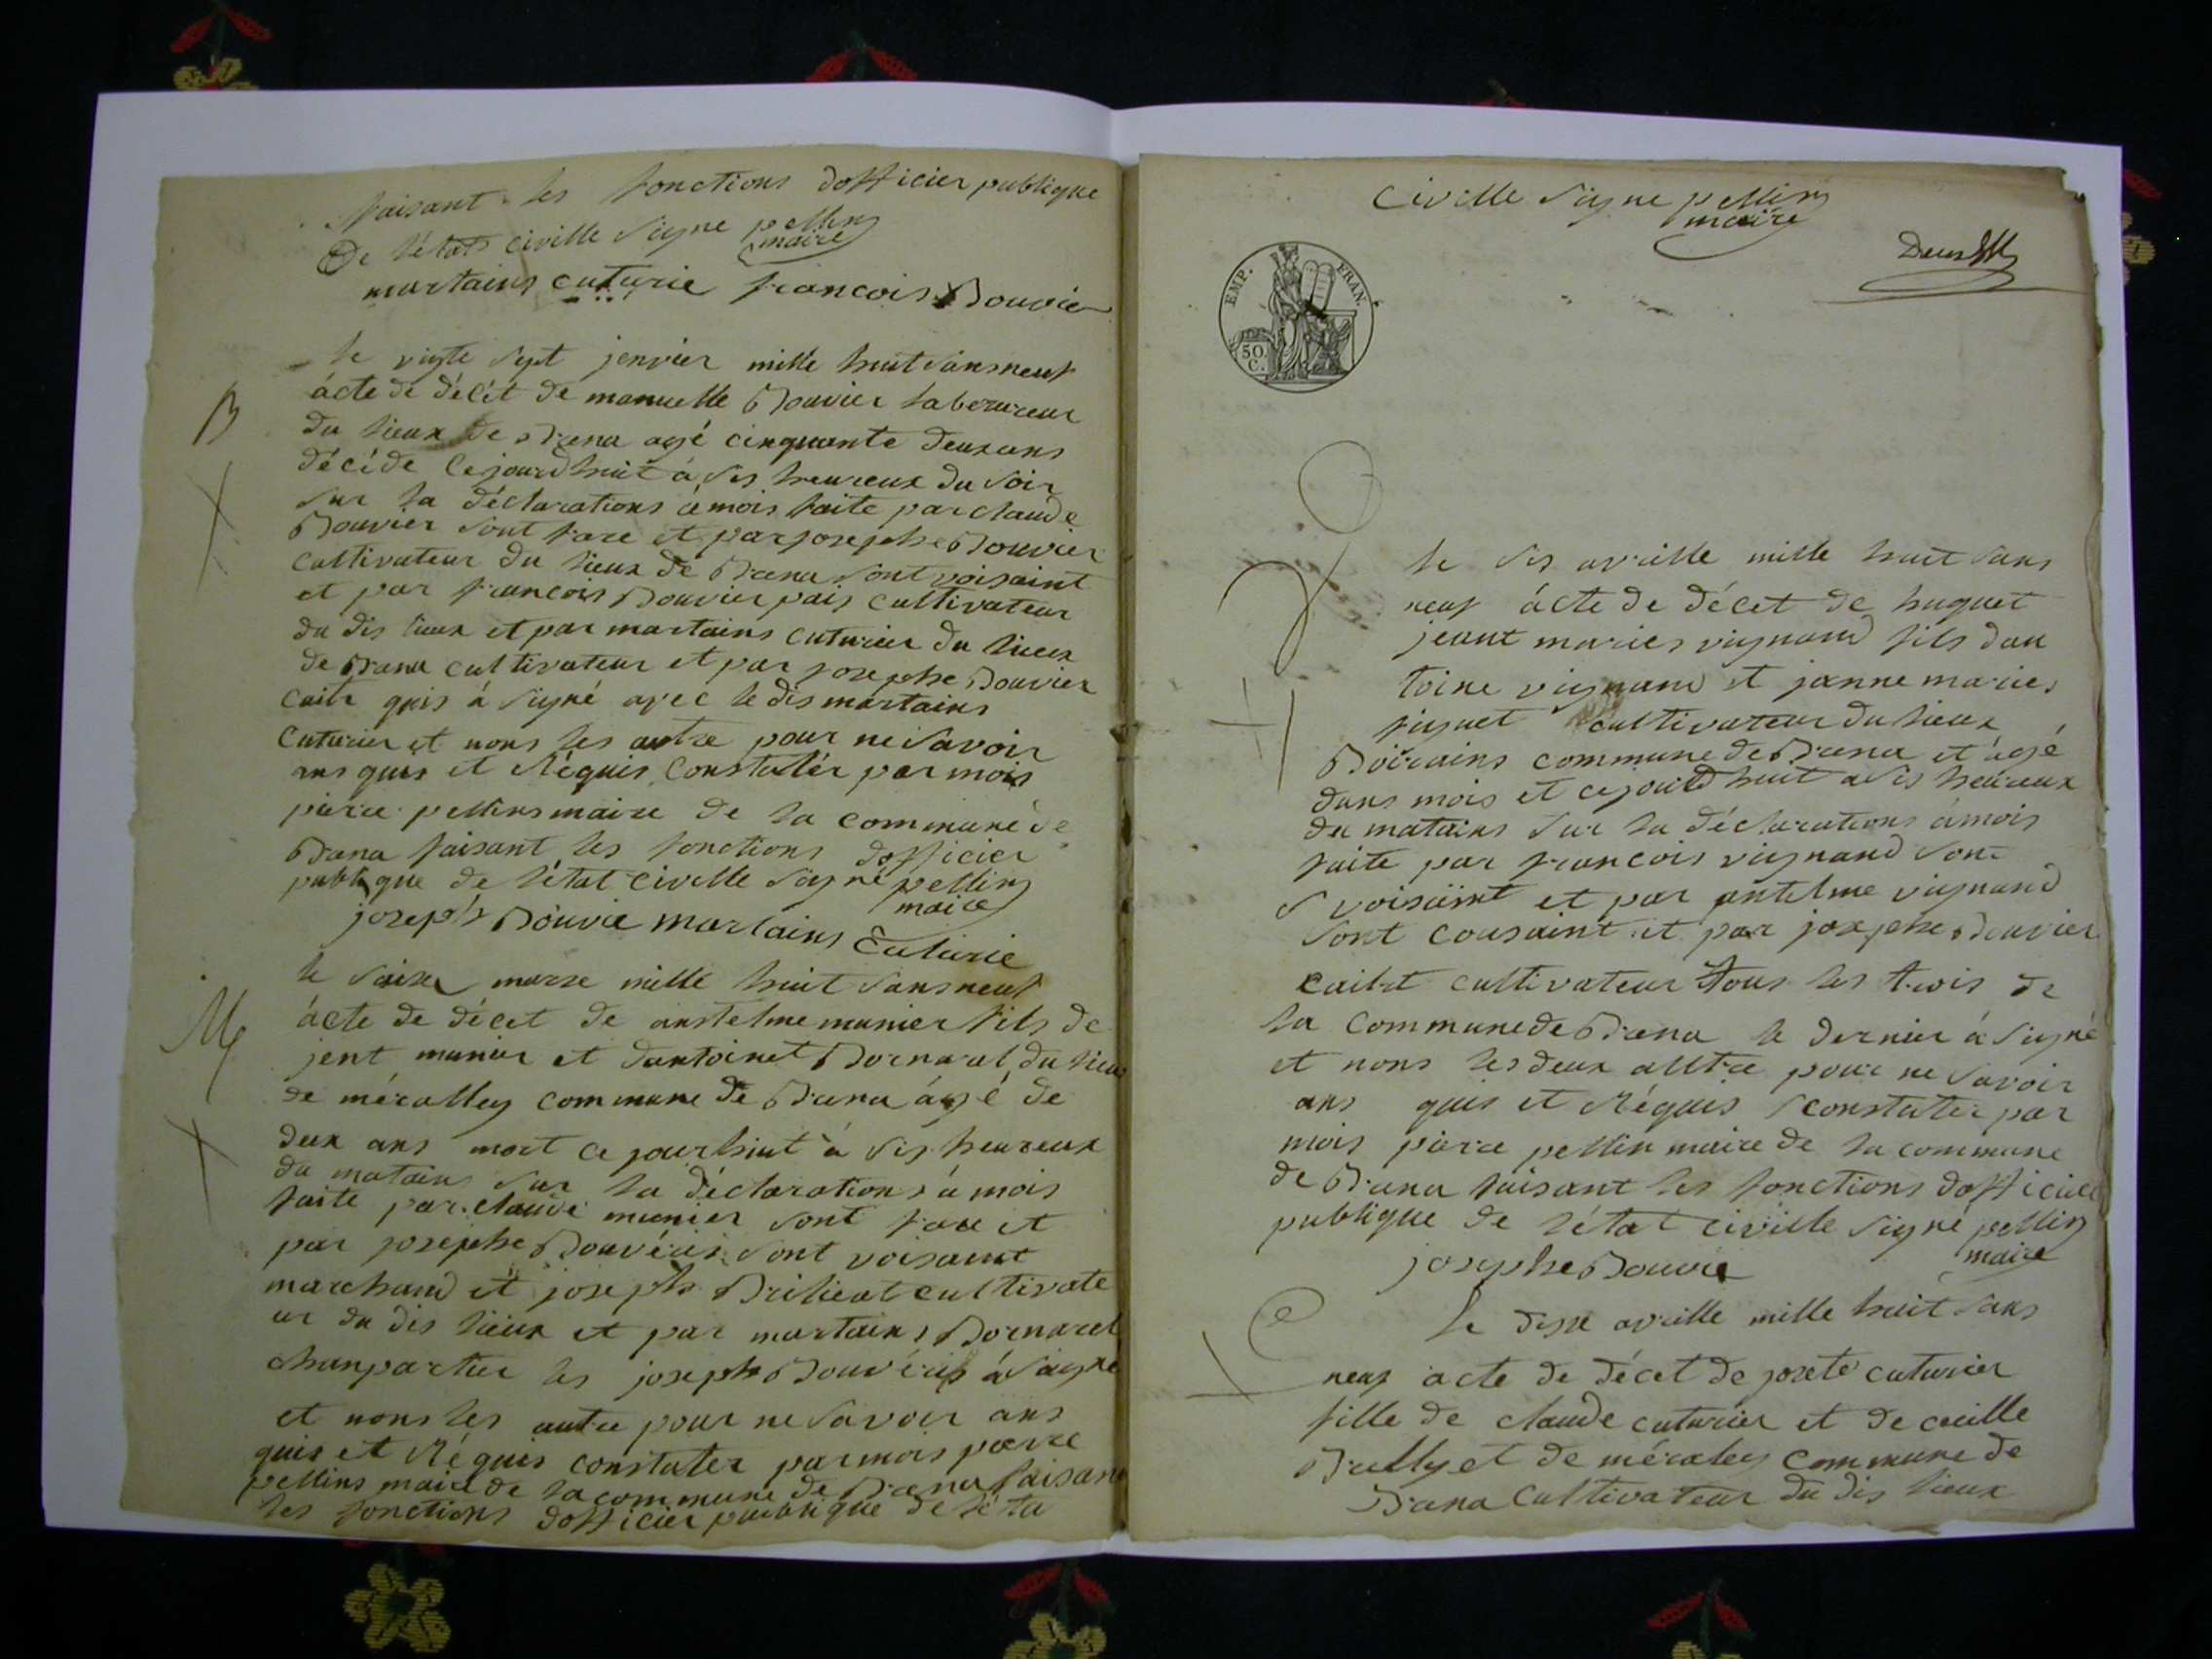 faisant les fonctions dofficier publique
De l'état civille signe pellin
maire
martains cuturie francois Bouvier
le vigte sept jenvier mille huit sans neuf
B
acte de décét de manuelle Bouvier laboureur
du lieux de Bréna agé cinquante deux ans
décéde cejourdhuit à sis heureux du soir
X
sur la déclarations à mois faite par claude
Bouvier sont frare et par josephe Bouvier
cultivateur du lieux de Bréna sont voisaint
et par francois Bouvier pais cultivateur
du dis lieux et par martains cuturier du lieux
de Bréna cultivateur et par josephe Bouvier
quis à signé avec le dis martains
cuturier et nons les autre pour ne savoir
ans quis et Réquis constatér par mois
piare pellins maire de la commune de
Bréna faisant les fonctions dofficier
publique de l'état civille signé pellin
maire
joseph Bouvie martains Cuturie
le saise marse mille huit sans neuf
M
acte de décet de anstelme munier fils de
jent munier et dantoinet Bornarel du lieux
de méralley commune de Bréna ágé de
X
deux ans mort ce jourhuit à sis heureux
du matains sur la déclarations à mois
faite par claude munier sont frare et
par josephe Bouvéris sont voisaint
marchand et joseph Brilieat cultivate
ur du dis lieux et par martains Bornarel
chanpartier les joseph Bouvéris à signe
et nons les autre pour ne savoir ans
quis et Réquis constater par mois piarre
pellins maire de la commune de Bréna faisant
les fonctions dofficier publique de l'éta
civille signe pellin
maire
EMP. FRAN.
50 C.
le sis avrille mille huit sans
neuf ácte de décet de huguet
jeant maries vignand fils dan
toine vignand et janne maries
cultivateur du lieux
commune de Bréna et agé
dans mois et cejourdhuit a sis heureux
du matains sur la déclarations à mois
faite par francois vignand sont
voisaint et par antelme vignand
sont cousaint et par josephe Bouvier
cultivateur tous les trois de
X
la commune de Bréna le dernier à signé
et nons les deux alltre pour ne savoir
ans quis et Réquis constater par
mois piarre pellin maire de la commune
de Bréna faisant les fonctions dofficier
publique de l'état civille signé pellin
maire
josephe Bouvie
C
le disse avrille mille huit sans
X
neuf acte de décet de josete cuturier
fille de claude cuturier et de
et de méraley commune de
Bréna cultivateur du dis lieux